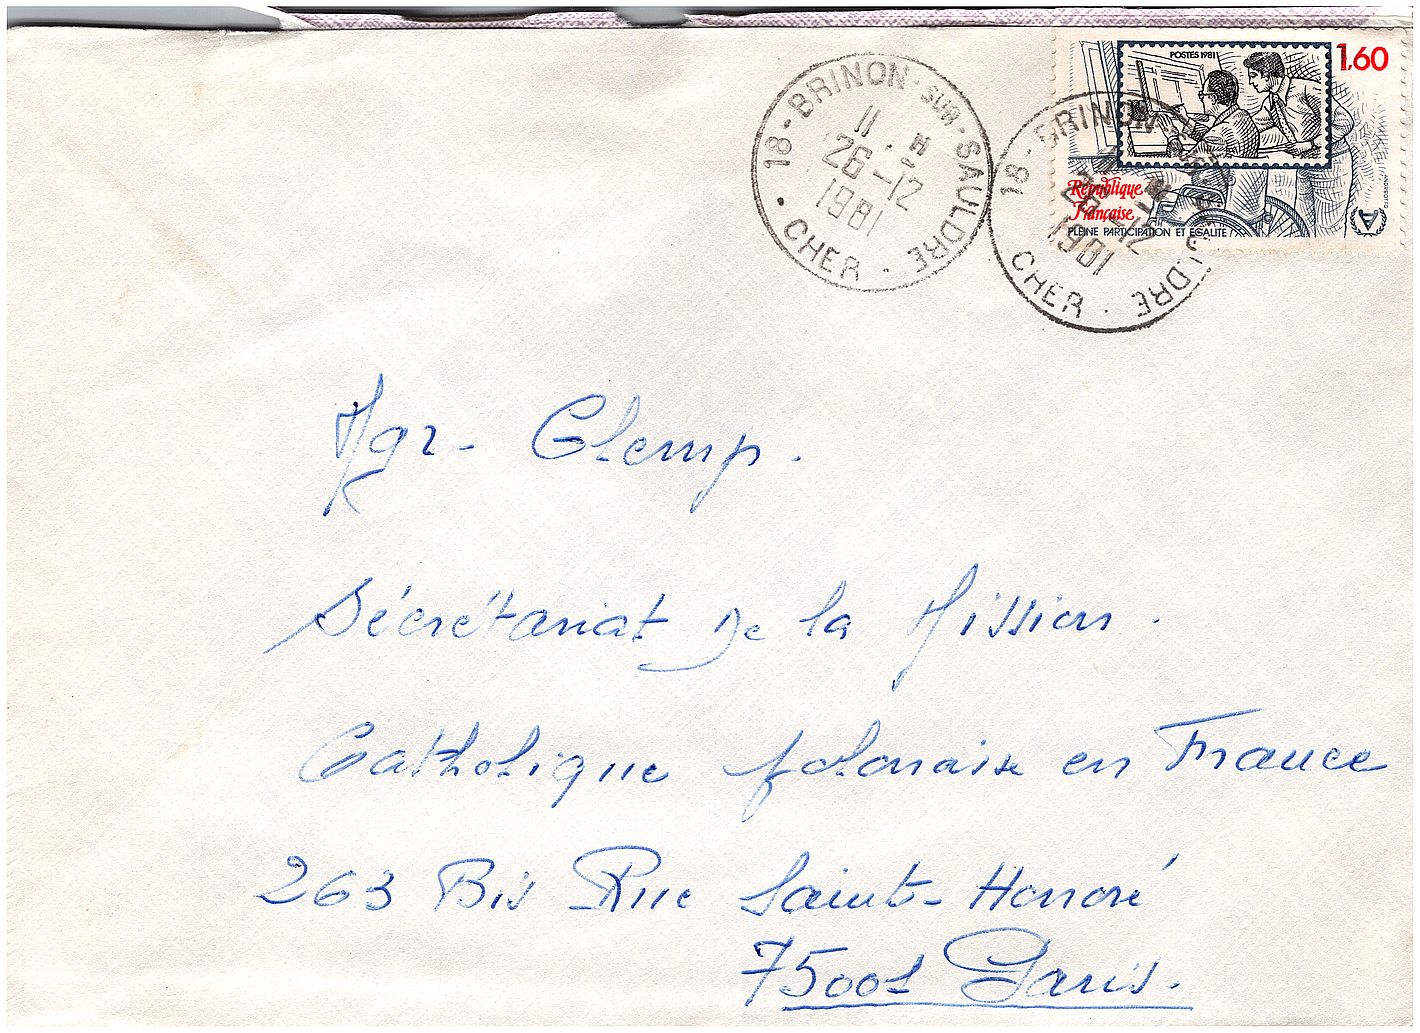 18 - BRINON - SUR - SAULDRE
11 H
26 - 12
1981
CHER
POSTES 1981
1,60
18 - BRINON - SUR - SAULDRE
26 - 12
1981
CHER
République
Française
PLEINE PARTICIPATION ET EGALITE
Mgr - Glemp.
Sécrétariat De la Mission.
Catholique polonaise en France
263 Bis Rue Saint - Honoré
75001 Paris.